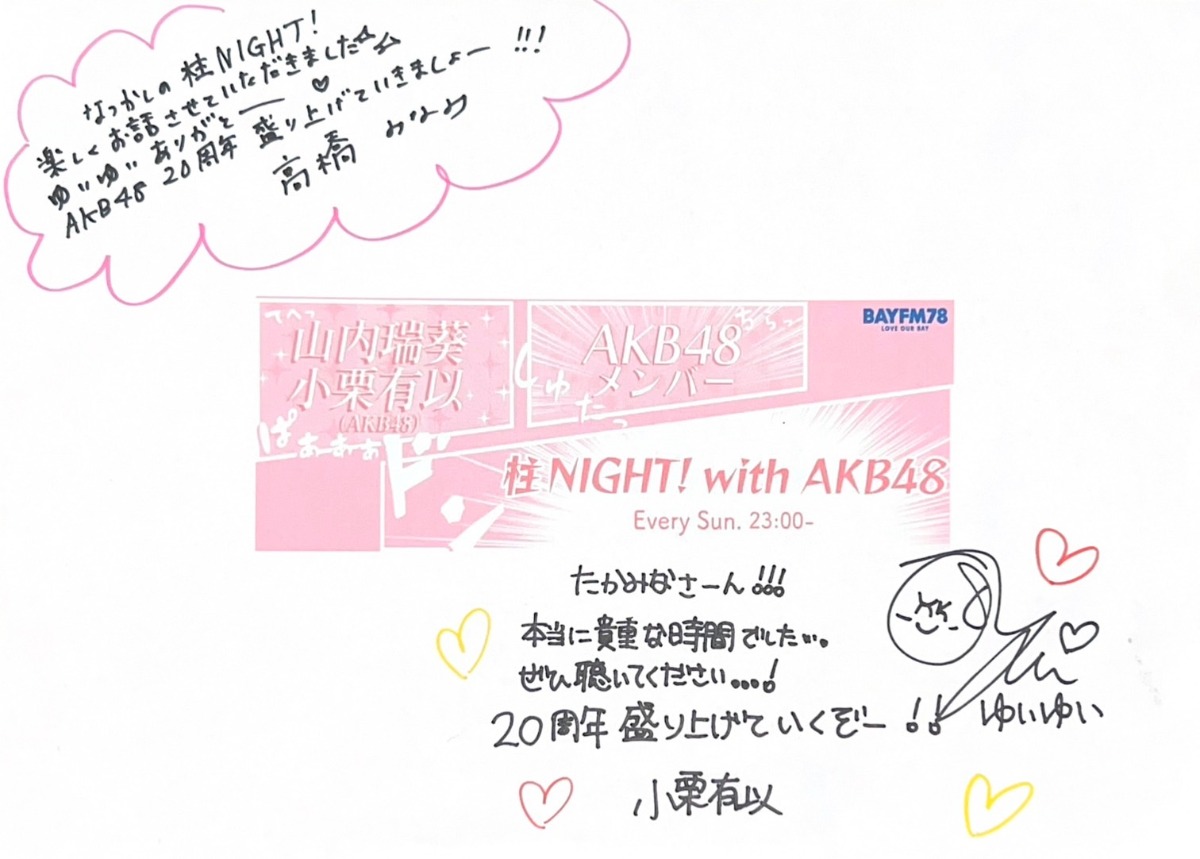 なつかしの 柱NIGHT!
楽しくお話させていただきました
ゆいゆい ありがとー
AKB48 20周年 盛り上げていきましょー !!!
高橋 みなみ
てへっ
山内瑞葵
小栗有以
(AKB48)
ちらっ
AKB48
メンバー
しゅたっ
BAYFM78
LOVE OUR BAY
ぱぁぁぁぁ
ドン
柱NIGHT! with AKB48
Every Sun. 23:00-
たかみなさーん!!!
本当に貴重な時間でした…。
ぜひ聴いてください…!
20周年 盛り上げていくぞー !!
ゆいゆい
小栗有以